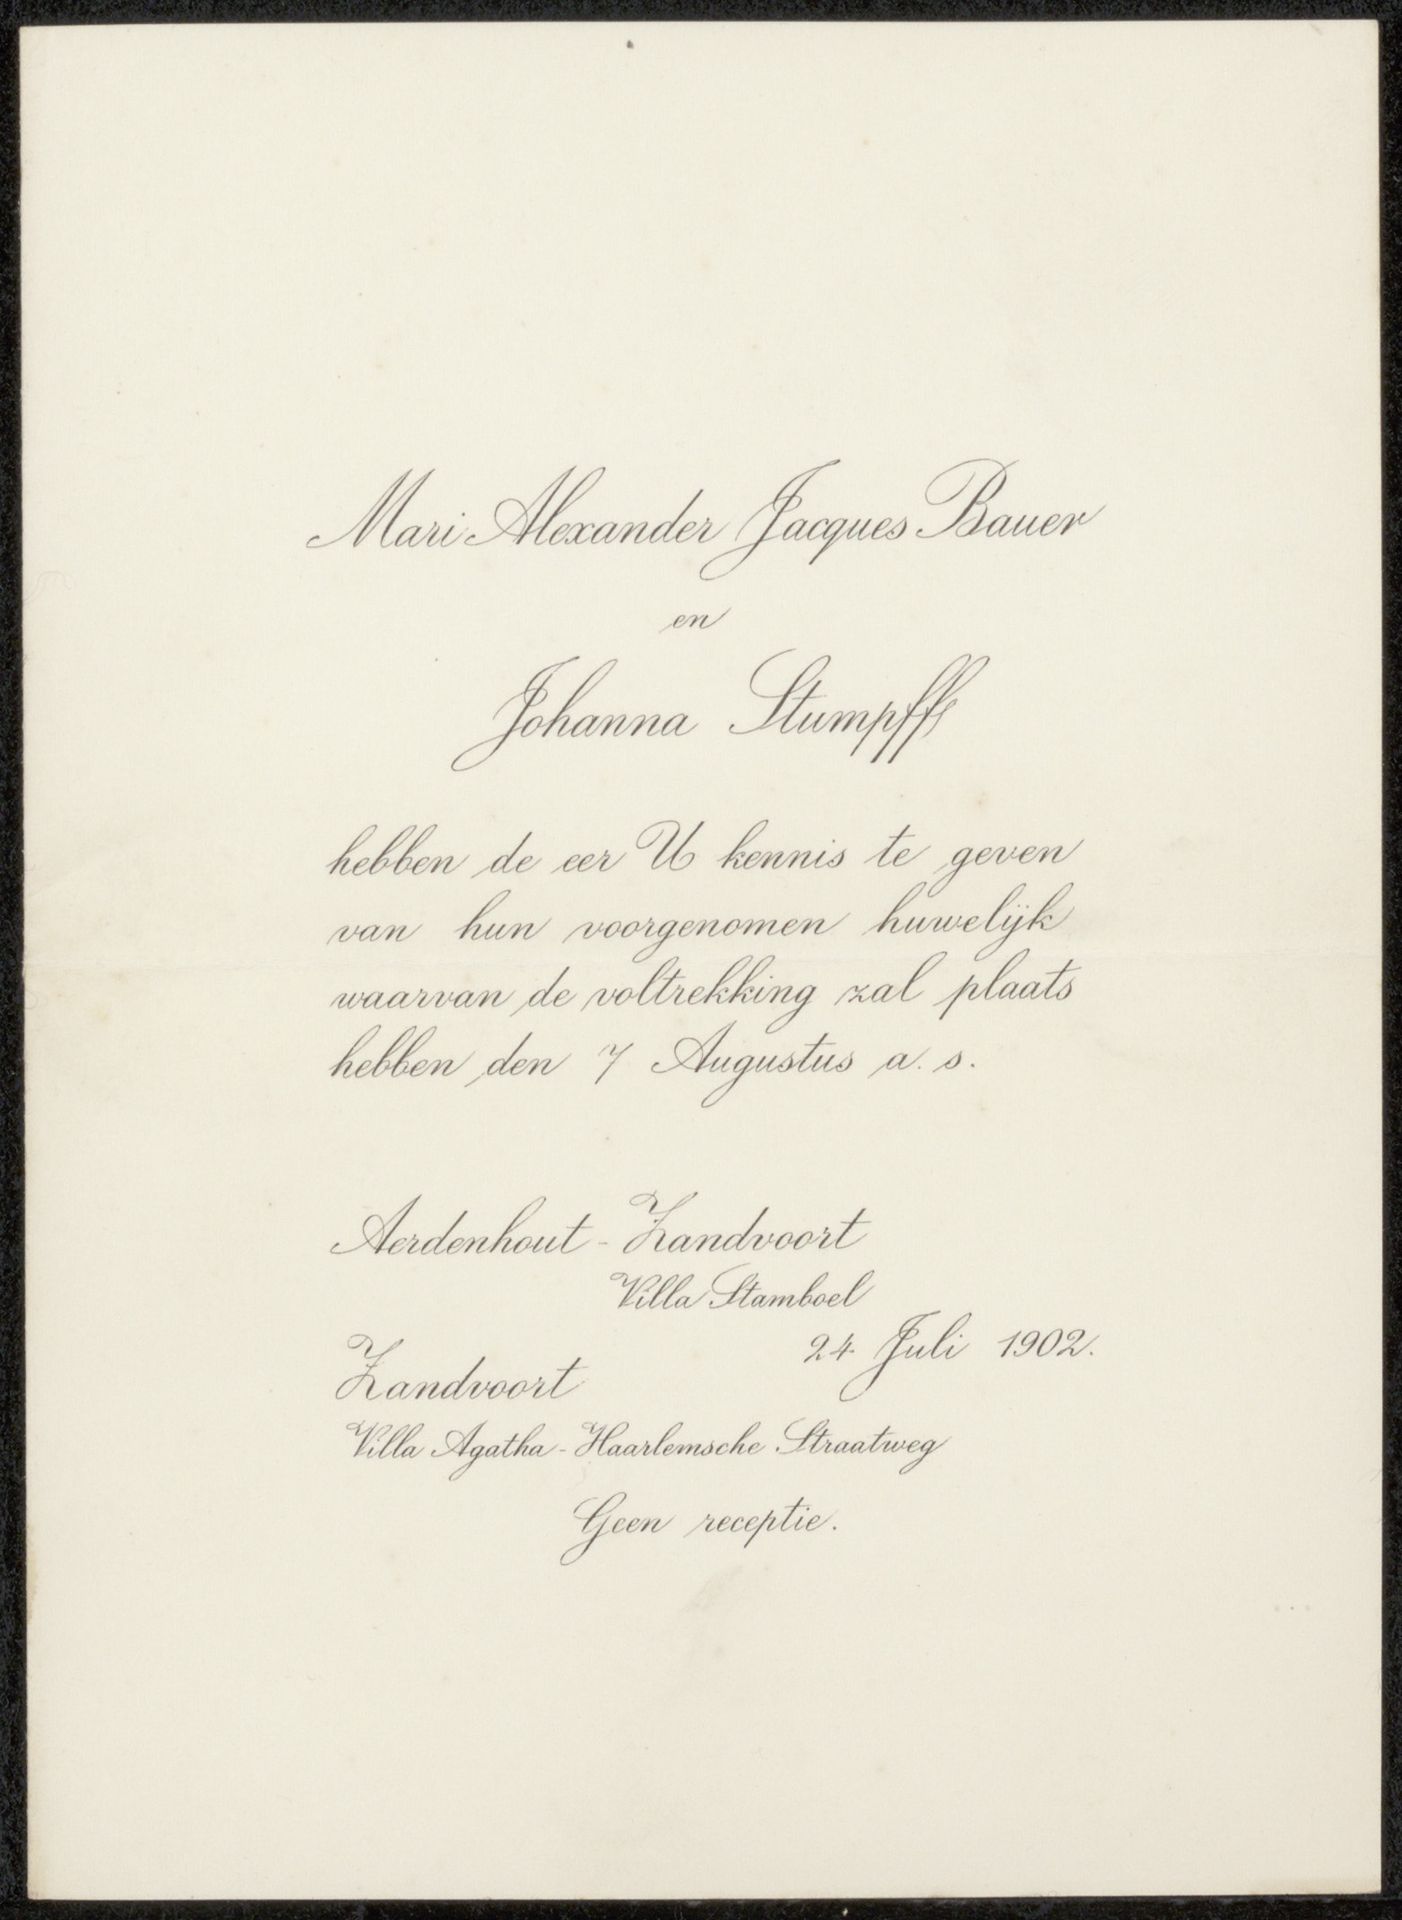 Mari Alexander Jacques Bauer
en
Johanna Stumpff
hebben de eer U kennis te geven
van hun voorgenomen huwelijk
waarvan de voltrekking zal plaats
hebben den 7 Augustus a. s.
Aerdenhout - Zandvoort
Villa Stamboel
24 Juli 1902.
Zandvoort
Villa Agatha - Haarlemsche Straatweg
Geen receptie.